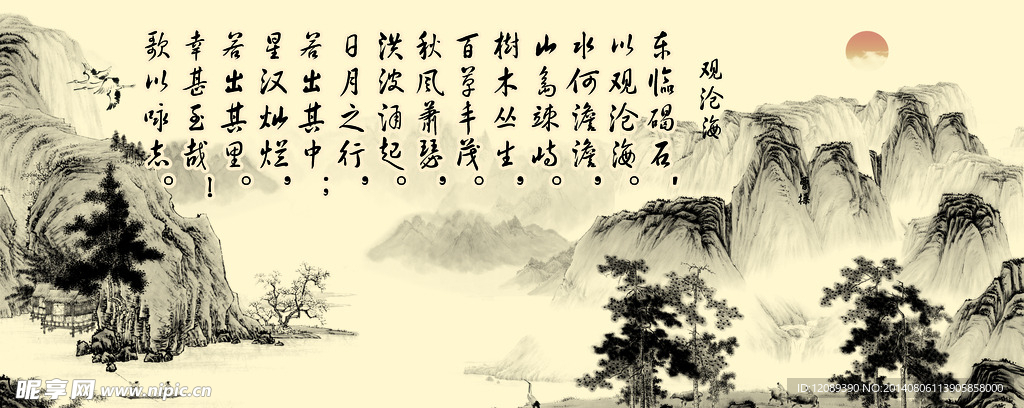 观沧海
曹操
东临碣石，
以观沧海。
水何澹澹，
山岛竦峙。
樹木丛生，
百草丰茂。
秋风萧瑟，
洪波涌起。
日月之行，
若出其中；
星汉灿烂，
若出其里。
幸甚至哉！
歌以咏志。
昵享网 www.nipic.cn
ID:12089390 NO:20140806113905858000